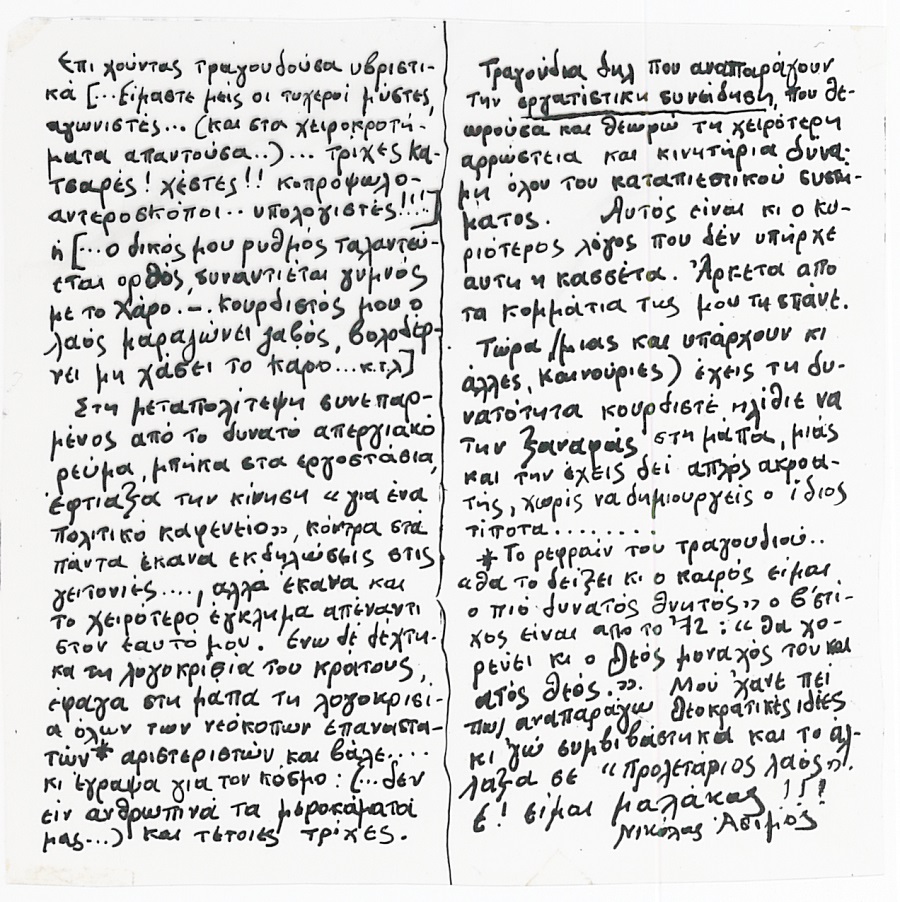 Επι χούντας τραγουδούσα υβριστι-
κά [...Είμαστε μεις οι τυχεροί μύστες,
αγωνιστές... (και στα χειροκροτή-
ματα απαντούσα..)... τρίχες κα-
τσαρές! χέστες!! κοπρόψωλο-
αντεροσκόποι.. υπολογιστές!!!...]
ή [...ο δικός μου ρυθμός ταλαντεύ-
εται ορθός, συναντιέται γυμνός
με το χάρο.-. Κουρδιστός μου ο
λαός μαραζώνει ζαβός, βολοδέρ-
νει μη χάσει το κάρο...κ.τ.λ]
Στη μεταπολίτεψη συνεπαρ-
μένος από το δυνατό απεργιακό
ρεύμα, μπήκα στα εργοστάσια,
έφτιαξα την κίνηση «για ένα
πολιτικό καφενείο», κόντρα στα
πάντα έκανα εκδηλώσεις στις
γειτονιές...., αλλά έκανα και
το χειρότερο έγκλημα απέναντι
στον εαυτό μου. Ενώ δε δέχτη-
κα τη λογοκρισία του κράτους,
έφαγα στη μάπα τη λογοκρισί-
α όλων των νεόκοπων επαναστα-
τών* αριστεριστών και βάλε....
κι έγραψα για τον κόσμο: (...δεν
είν ανθρωπινά τα μεροκάματά
μας...) και τέτοιες τρίχες.
Τραγούδια δηλ που αναπαράγουν
την εργατίστικη συνείδηση, που θε-
ωρούσα και θεωρώ τη χειρότερη
αρρώστεια και κινητήρια δύνα-
μη όλου του καταπιεστικού συστή-
ματος. Αυτός είναι κι ο κυ-
ριότερος λόγος που δέν υπήρχε
αυτη η κασσέτα. Άρκετα απο
τα κομμάτια της μου τη σπάνε.
Τώρα (μιας και υπάρχουν κι
άλλες, καινούριες) έχεις τη δυ-
νατότητα κουρδιστέ ηλίθιε να
την ξαναφάς στη μάπα, μιάς
και την έχεις δεί απλός ακροα-
τής, χωρίς να δημιουργείς ο ίδιος
τίποτα.........
* Το ρεφραίν του τραγουδιού..
«θα το δείξει κι ο καιρός είμαι
ο πιό δυνατός θνητός» ο στί-
χος είναι απο το '72: «θα χο-
ρεύει κι ο θεός μοναχός του και
ατός θεός.». Μού 'χανε πεί
πως αναπαράγω θεοκρατικές ιδέες
κι 'γώ συμβιβαστηκα και το άλ-
λαξα σε «προλετάριος λαός».
Ε! είμαι μαλάκας !!!
Νικόλας Άσιμος